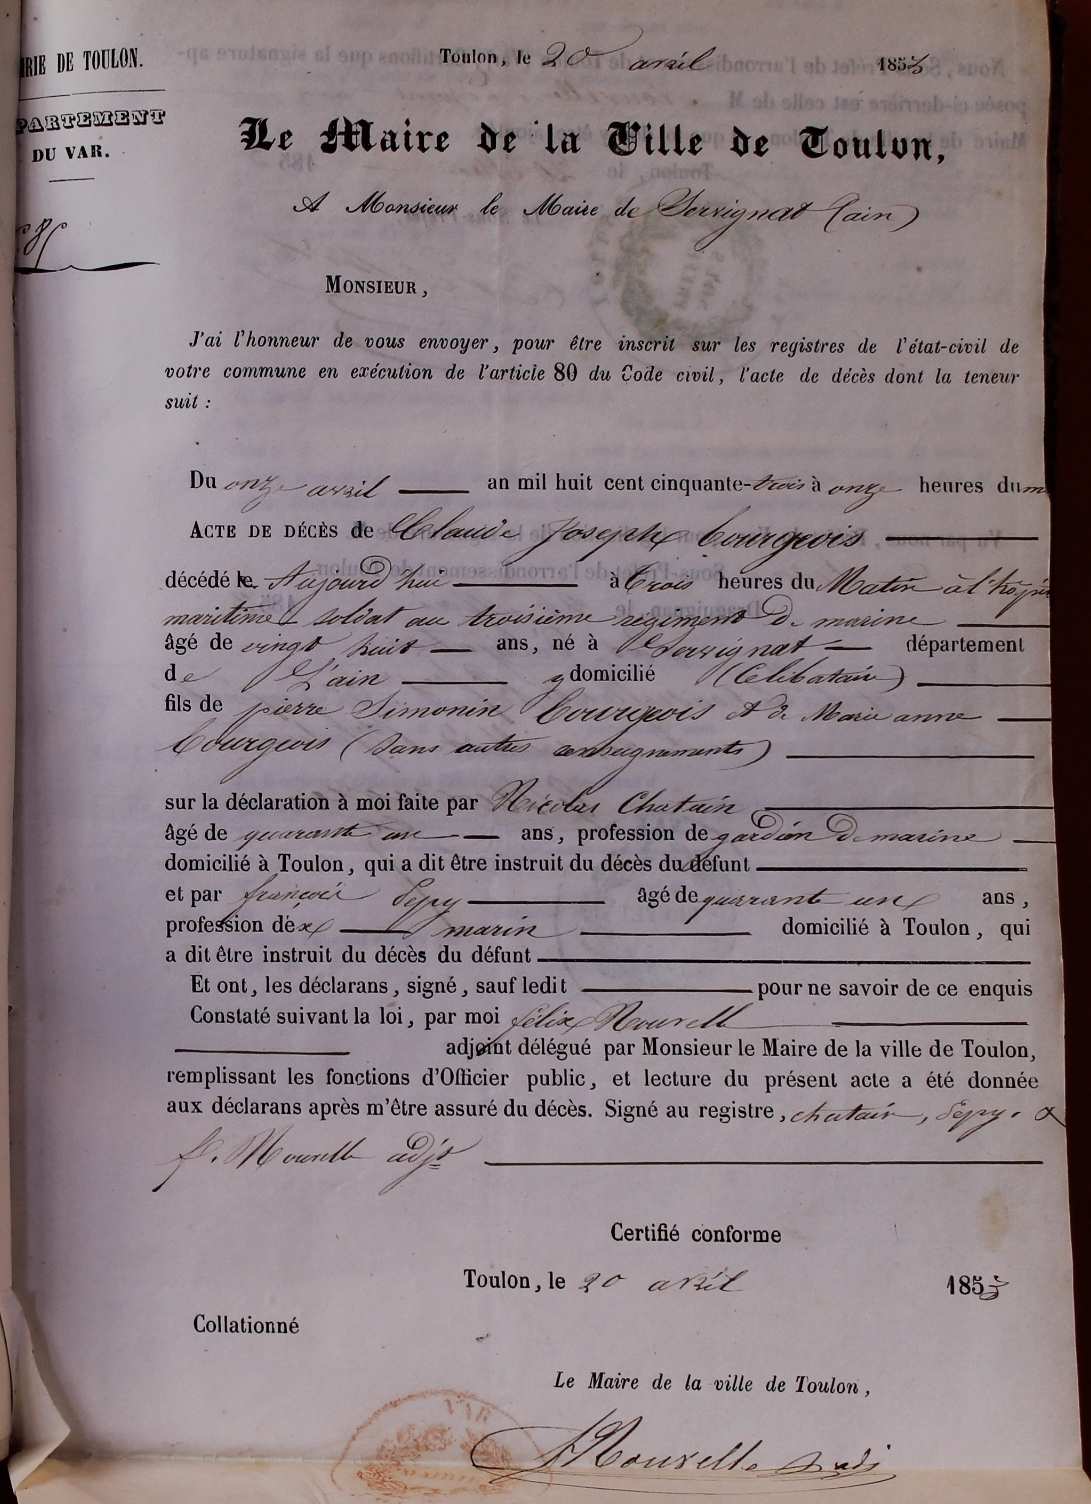 RIE DE TOULON.
PARTEMENT
DU VAR.
Toulon, le 20 avril 1853
Le Maire de la Ville de Toulon,
A Monsieur le Maire de Servignat (ain)
MONSIEUR,
J'ai l'honneur de vous envoyer, pour être inscrit sur les registres de l'état-civil de
votre commune en exécution de l'article 80 du Code civil, l'acte de décès dont la teneur
suit :
Du onze avril an mil huit cent cinquante-trois à onze heures du m
ACTE DE DÉCÈS de Claude Joseph Bourgeois
décédé le Aujourd'hui à trois heures du Matin à l'hôpi
maritime soldat au troisième régiment de marine
âgé de vingt huit ans, né à Servignat département
de L'ain y domicilié (Célibataire)
fils de pierre Simonin Bourgeois et de Marie anne
Bourgeois (sans autres renseignements)
sur la déclaration à moi faite par Nicolas Chatain
âgé de quarante un ans, profession de gardien de marine
domicilié à Toulon, qui a dit être instruit du décès du défunt
et par françois Sépy âgé de quarante un ans,
profession de marin domicilié à Toulon, qui
a dit être instruit du décès du défunt
Et ont, les déclarans, signé, sauf ledit pour ne savoir de ce enquis
Constaté suivant la loi, par moi félix Nourell
adjoint délégué par Monsieur le Maire de la ville de Toulon,
remplissant les fonctions d'Officier public, et lecture du présent acte a été donnée
aux déclarans après m'être assuré du décès. Signé au registre, chatain, Sépy. &
f. Nourelle adjt
Certifié conforme
Toulon, le 20 avril 1853
Collationné
Le Maire de la ville de Toulon,
VAR